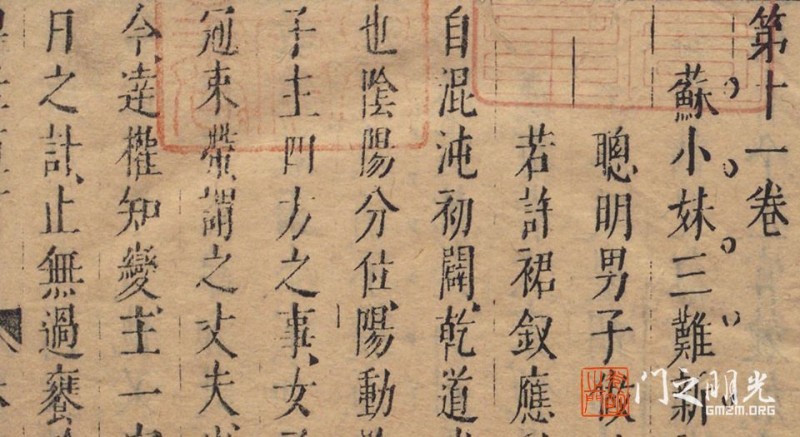 第十一卷
蘇小妹三難新
聰明男子做
若許裙釵應
自混沌初闢乾道
也陰陽分位陽動
子主四方之事女
冠束帶謂之丈夫
今達權知變主一
日之計止無過饔
门之明光
GM2M.ORG